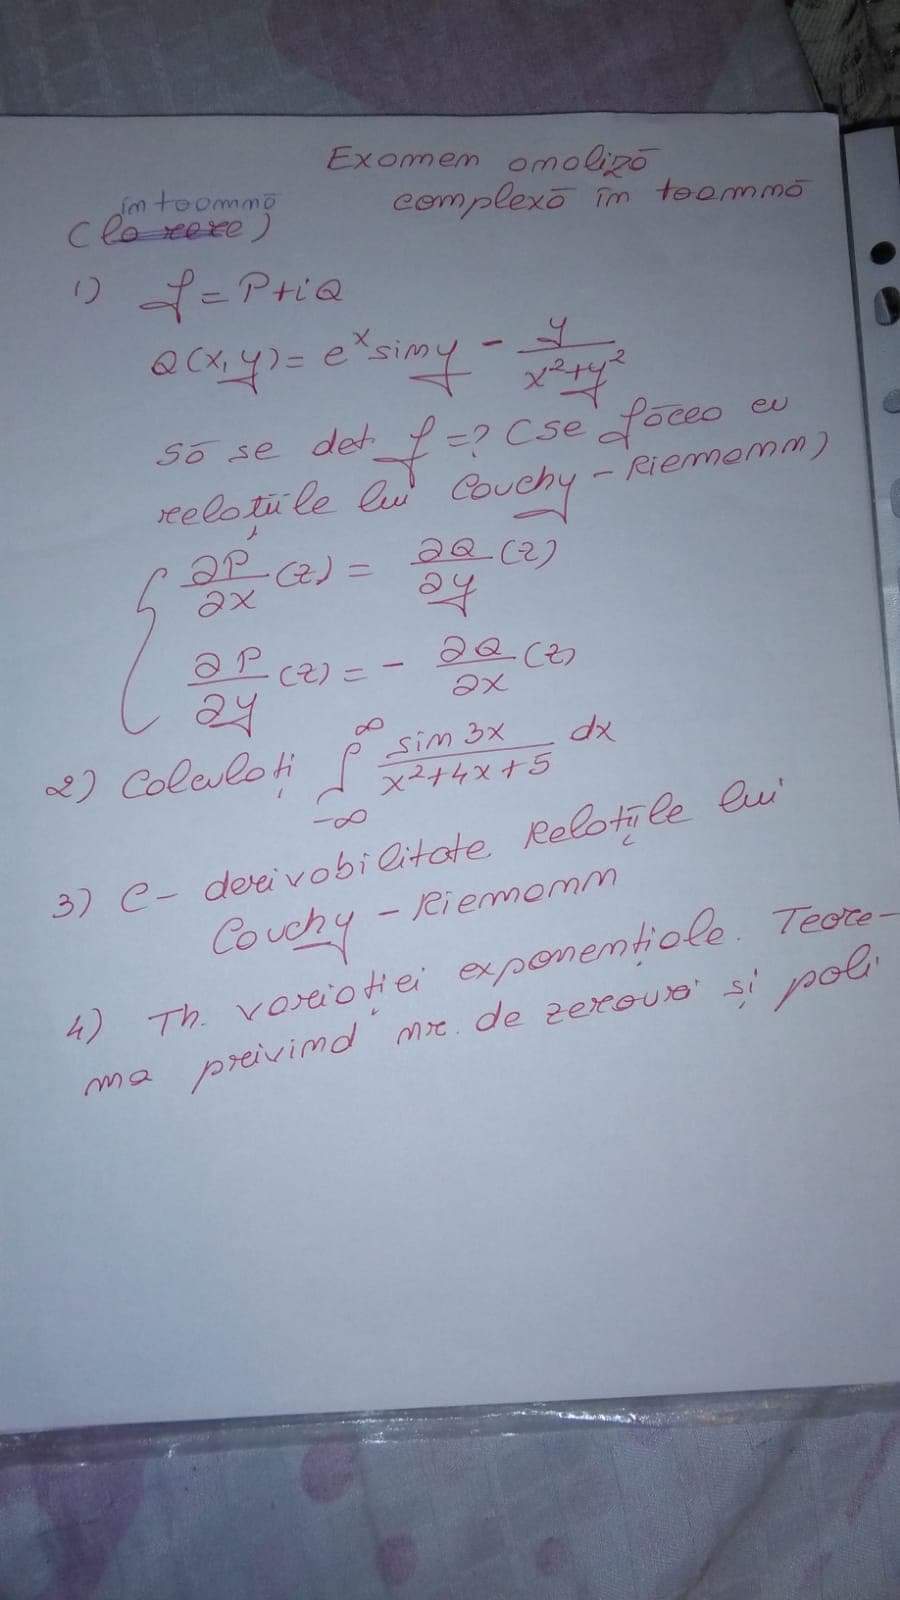 Examen analiză
complexă în toamnă
în toamnă
(la rere)
1) f = P+iQ
Q(x,y) = e^x sin y - y/(x²+y²)
Să se det. f=? (se făcea cu
relațiile lui Cauchy-Riemann)
{ ∂P/∂x (z) = ∂Q/∂y (z)
∂P/∂y (z) = - ∂Q/∂x (z)
2) Calculați ∫_{-∞}^{∞} sin 3x/(x²+4x+5) dx
3) C- derivabilitate. Relațiile lui
Cauchy-Riemann
4) Th. variației exponențiale. Teore-
ma privind nr. de zerouri și poli